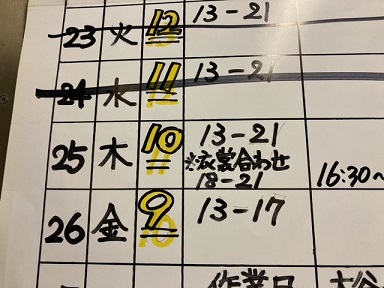 23 火 12 13-21
24 水 11 13-21
25 木 10 13-21
※衣裳合わせ
18-21 16:30~
26 金 9 13-17
作業日